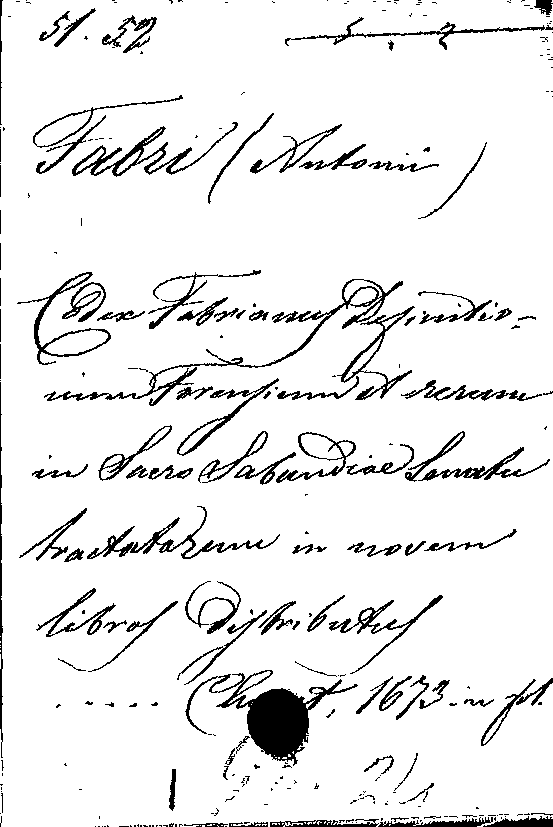 51. 52
5. 2
Fabri (Antonii)
Codex Fabrianus Definitio-
num Forensium et rerum
in Sacro Sabaudiae Senatu
tractatarum in novem
libros distributus
..... 1673 in fol.